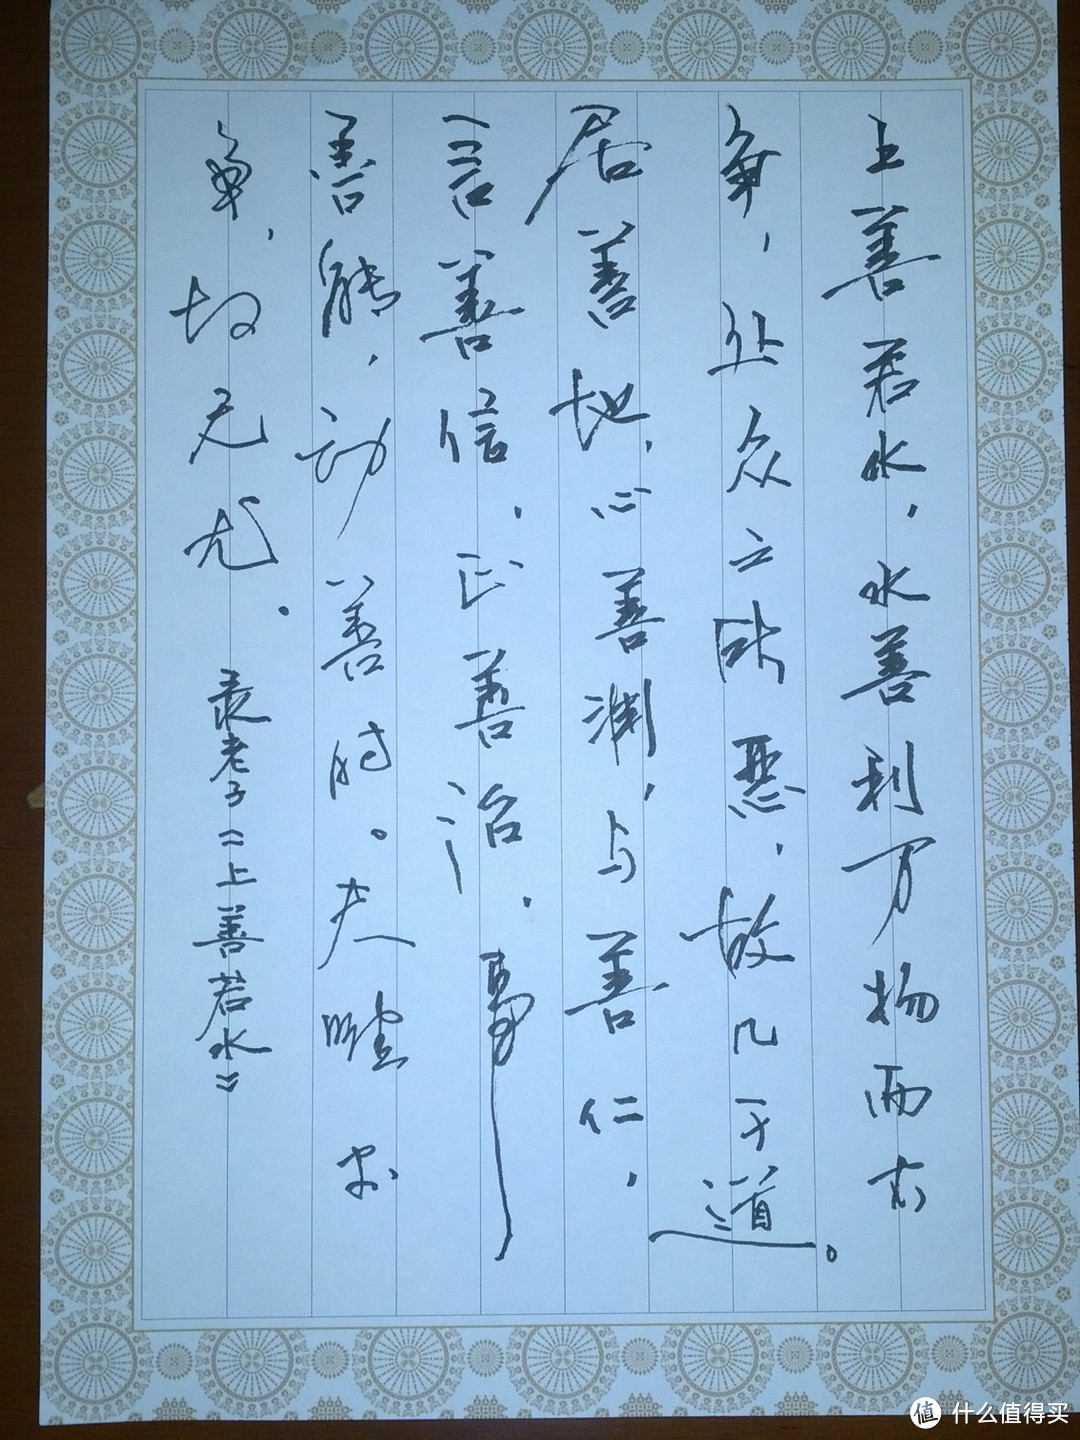 上善若水，水善利万物而不
争，处众之所恶，故几于道。
居善地，心善渊，与善仁，
言善信，正善治，事
善能，动善时。夫唯不
争，故无尤。
录老子《上善若水》
值 什么值得买